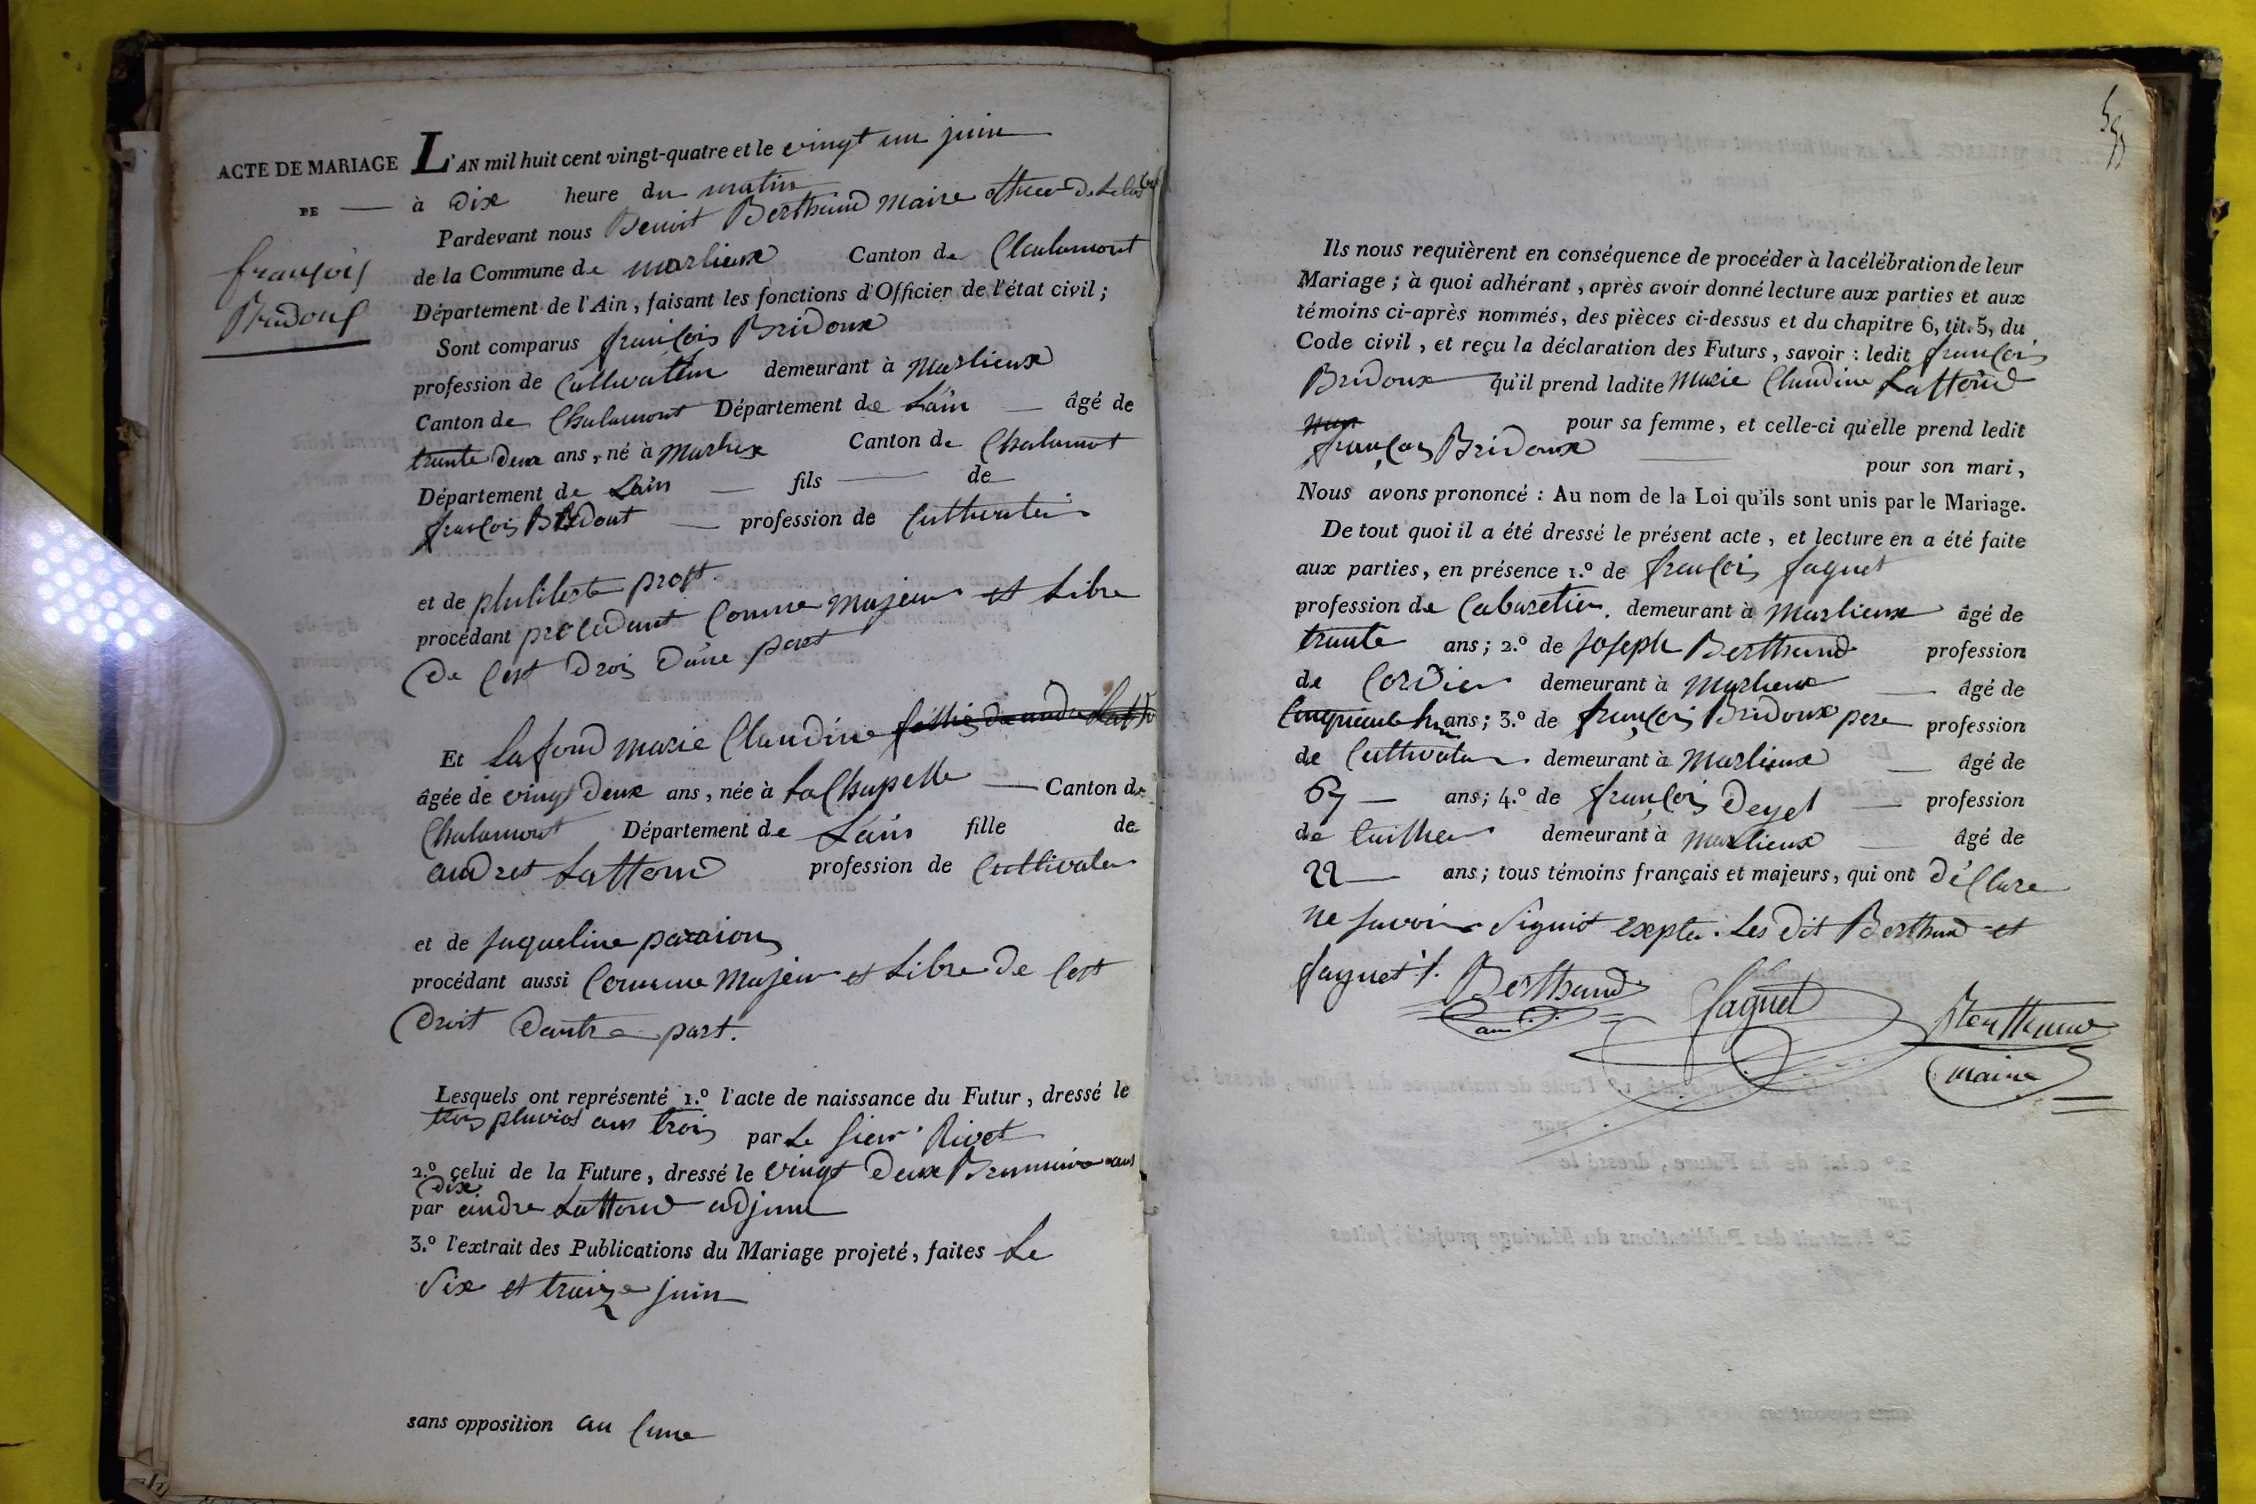 ACTE DE MARIAGE
DE —
françois
Bridoux
L'AN mil huit cent vingt-quatre et le vingt un juin
à dix heure du matin
Pardevant nous Benoit Berthaud maire
de la Commune de marlieux Canton de Chalamont
Département de l'Ain, faisant les fonctions d'Officier de l'état civil;
Sont comparus françois Bridoux
profession de Cultivateur demeurant à Marlieux
Canton de Chalamont Département de Lain — âgé de
trente deux ans, né à Marlieux Canton de Chalamont
Département de Lain — fils — de
françois Bridout — profession de Cultivateur
et de philiberte prost
procédant procedant Comme Majeur et Libre
De Cest Drois Dune part
Et Lafond marie Claudine
âgée de vingt deux ans, née à La Chapelle — Canton de
Chalamont Département de Lain fille de
andret Laffond profession de Cultivateur
et de Jaqueline
procédant aussi Comme Majeur et Libre De Cest
Droit Dautre part.
Lesquels ont représenté 1.º l'acte de naissance du Futur, dressé le
trois pluvios ans trois par Le Sieur Rivet
2.º celui de la Future, dressé le vingt Deux Brumaire ans
Dix
par andre Laffond adjoint
3.º l'extrait des Publications du Mariage projeté, faites Le
Six et traize juin
sans opposition au Cune
Ils nous requièrent en conséquence de procéder à la célébration de leur
Mariage; à quoi adhérant, après avoir donné lecture aux parties et aux
témoins ci-après nommés, des pièces ci-dessus et du chapitre 6, tit. 5, du
Code civil, et reçu la déclaration des Futurs, savoir: ledit françois
Bridoux qu'il prend ladite Marie Claudine Laffond
pour sa femme, et celle-ci qu'elle prend ledit
françois Bridoux — pour son mari,
Nous avons prononcé: Au nom de la Loi qu'ils sont unis par le Mariage.
De tout quoi il a été dressé le présent acte, et lecture en a été faite
aux parties, en présence 1.º de françois faguet
profession de Cabaretier demeurant à Marlieux âgé de
trante ans; 2.º de Joseph Berthaud profession
de Cordier demeurant à Marlieux — âgé de
Cinquante ans; 3.º de françois Bridoux pere profession
de Cultivateur demeurant à Marlieux — âgé de
67 — ans; 4.º de françois — profession
de tailleur demeurant à Marlieux — âgé de
22 — ans; tous témoins français et majeurs, qui ont déClare
ne savoir Signié exepter Les Dit Berthaud et
faguet
Berthaud
faguet
Berthaud
maire